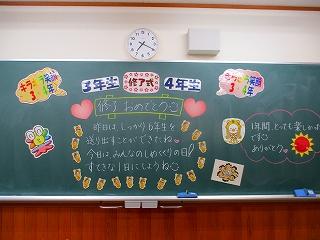 3年生 修了式 4年生
修了 おめでとう
昨日は、しっかり6年生を
送り出すことができたね
今日は、みんなのしめくくりの日!
すてきな1日にしようね
1年間、とっても楽しかった
ですこ
ありがとう
キラキラ笑顔
3 4